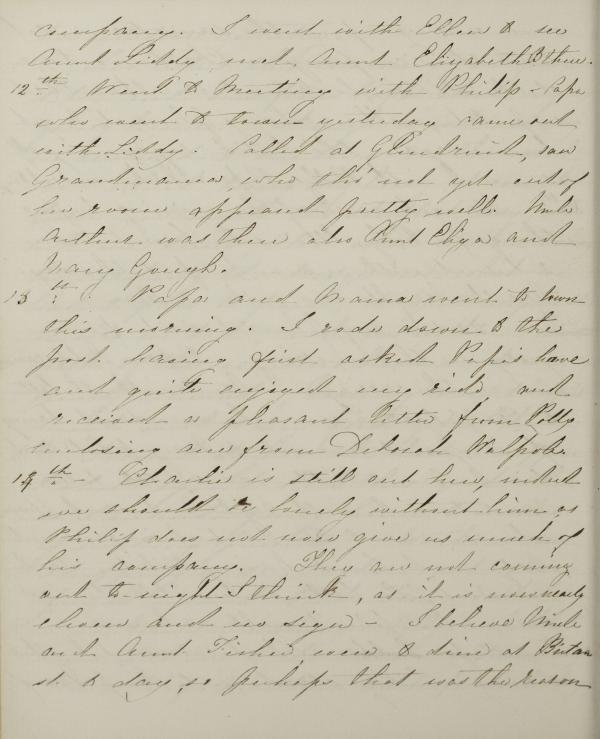 company. I went with Ellen to see
Aunt Liddy, met Aunt Elizabeth B there.
12th Went to Meeting with Philip - Papa
who went to town yesterday came out
with Liddy. Called at Glendruid, saw
Grandmama, who tho' not yet out of
her room appeared pretty well. Uncle
Arthur was there also Aunt Eliza and
Mary Gough.
13th. Papa and Mama went to town
this morning. I rode down to the
post having first asked Papa's leave
and quite enjoyed my ride and
received a pleasant letter from Polly
enclosing one from Deborah Walpole.
14th - Charlie is still out here, indeed
we should be lonely without him as
Philip does not now give us much of
his company. They are not coming
out to-night I think, as it is now nearly
eleven and no sign - I believe Uncle
and Aunt Fisher were to dine at
st. to day, so perhaps that was the reason